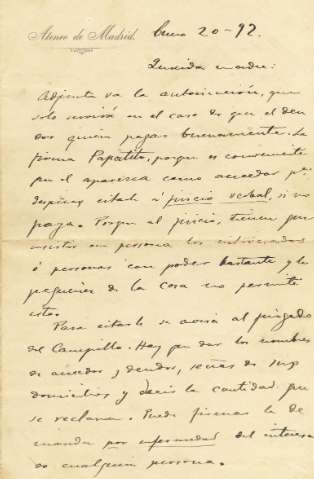 Ateneo de Madrid. Enero 20-92.
Querida madre:
Adjunta va la autorización, que
solo servirá en el caso de que el deu
dor quiera pagar buenamente. La
firma Papatito, porque es conveniente
que él aparezca como acreedor pa
después citarle á juicio verbal, si no
paga. Porque al juicio, tienen que
asistir en persona los interesados
ó personas con poder bastante y la
pequeñez de la cosa no permite
esto.
Para citarlo se avisa al juzgado
del Campillo. Hay que dar los nombres
de acreedor y deudor, señas de sus
domicilios y decir la cantidad que
se reclama. Puede firmar la de
manda por enfermedad del interesa
do cualquier persona.